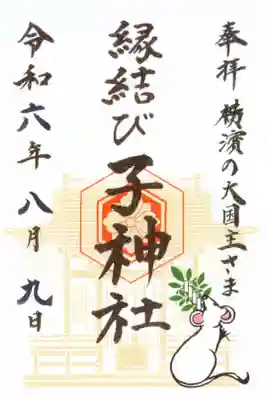 奉拝 横濱の大国主さま
縁結び 子神社
令和六年 八月 九日